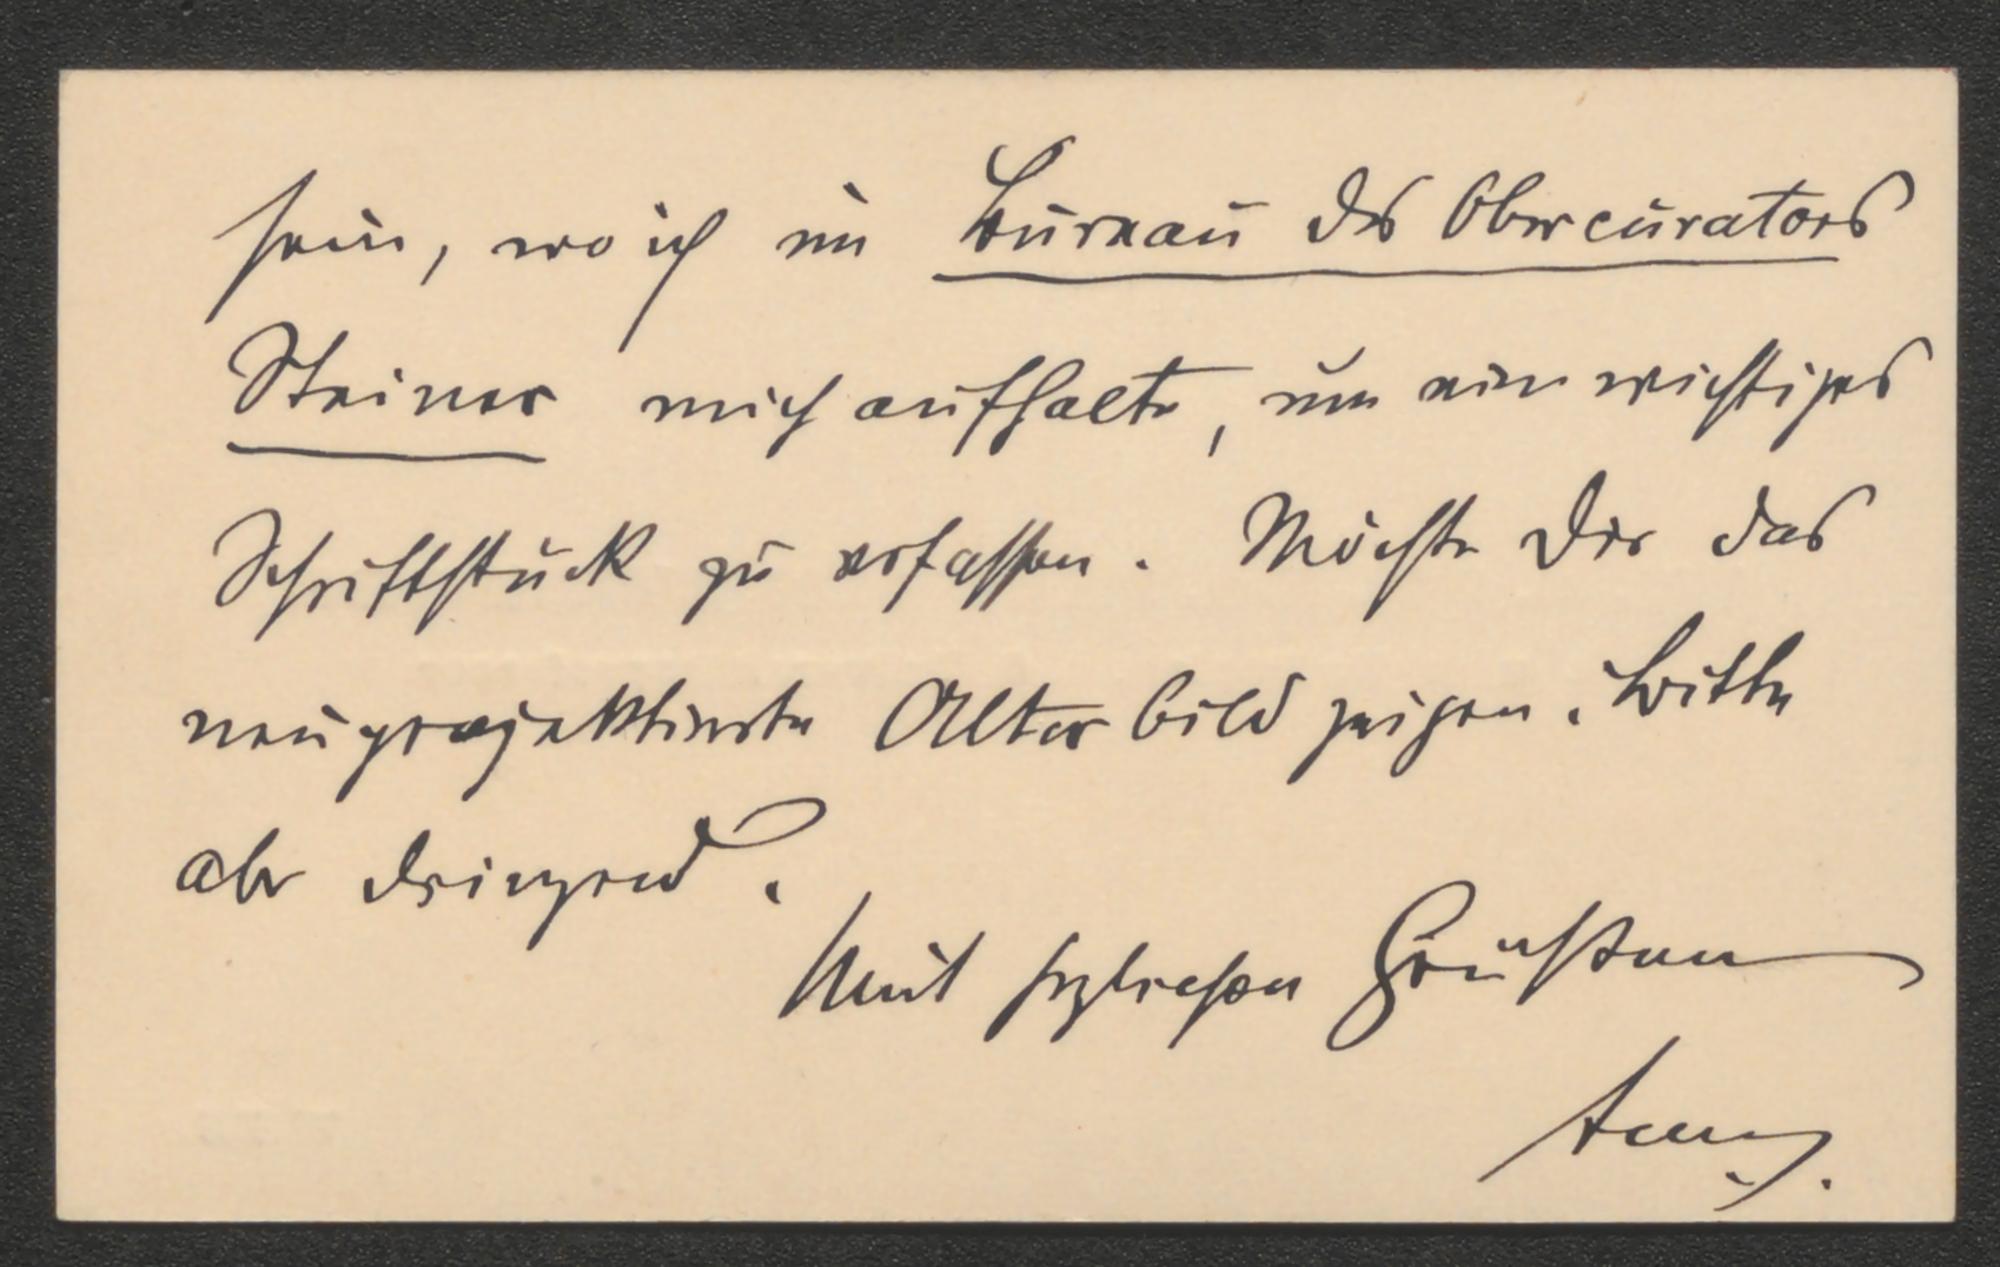 sein, wo ich im Bureau des Obercurators
Steiner mich aufhalte, um ein wichtiges
Schriftstück zu verfassen. Möchte Dir das
neuprojektierte Altarbild zeigen. Bitte
aber dringend.
Mit herzlichen Grüßen